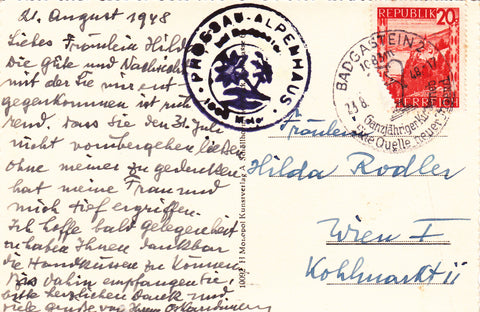 21. August 1948
Liebes Fräulein Hilda
Die Güte und Nachsicht
mit der Sie mir ent
gegenkommen ist rüh
rend. Dass Sie den 31. Juli
nicht vorübergehen ließen
ohne meiner zu gedenken
hat meine Frau und
mich tief ergriffen.
Ich hoffe bald Gelegenheit
zu haben Ihnen dankbar
die Hand küssen zu können
Bis dahin empfangen Sie,
bitte herzlichen Dank und
viele Grüße von Ihrem
PROSSAU-ALPENHAUS
bei Badgastein
Meter
REPUBLIK 20
ÖSTERREICH
BADGASTEIN 2
23.8. 48
Ganzjähriger Kurort
Quelle neuer
Fräulein
Hilda Rodler
Wien I
Kohlmarkt 11
H Monopol Kunstverlag A.